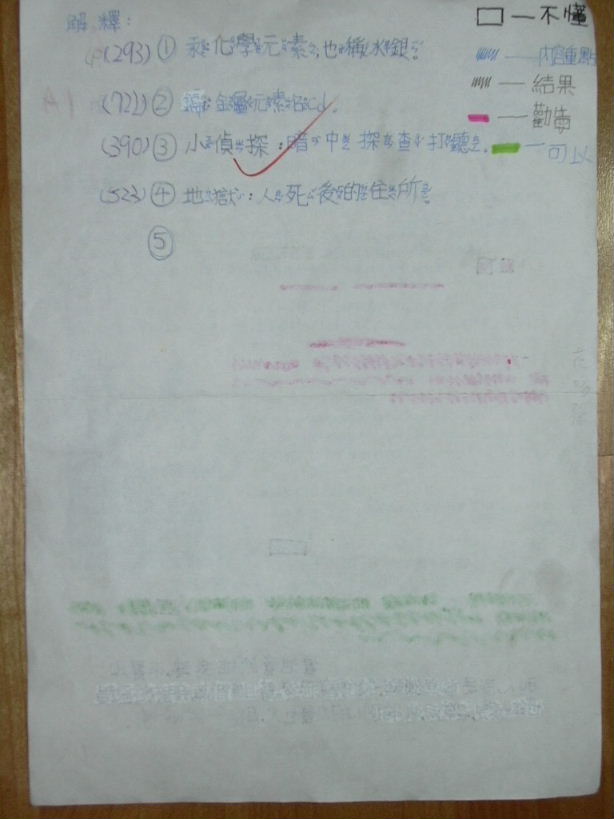 解釋:
□—不懂
(P(293)① 汞:化學元素,也稱水銀。
—內容重點
—結果
(721)② 鎘:金屬元素名Cd。
—勸告
(390)③ 小偵探:暗中探查打聽。
—可以
(523)④ 地獄:人死後的住所
⑤